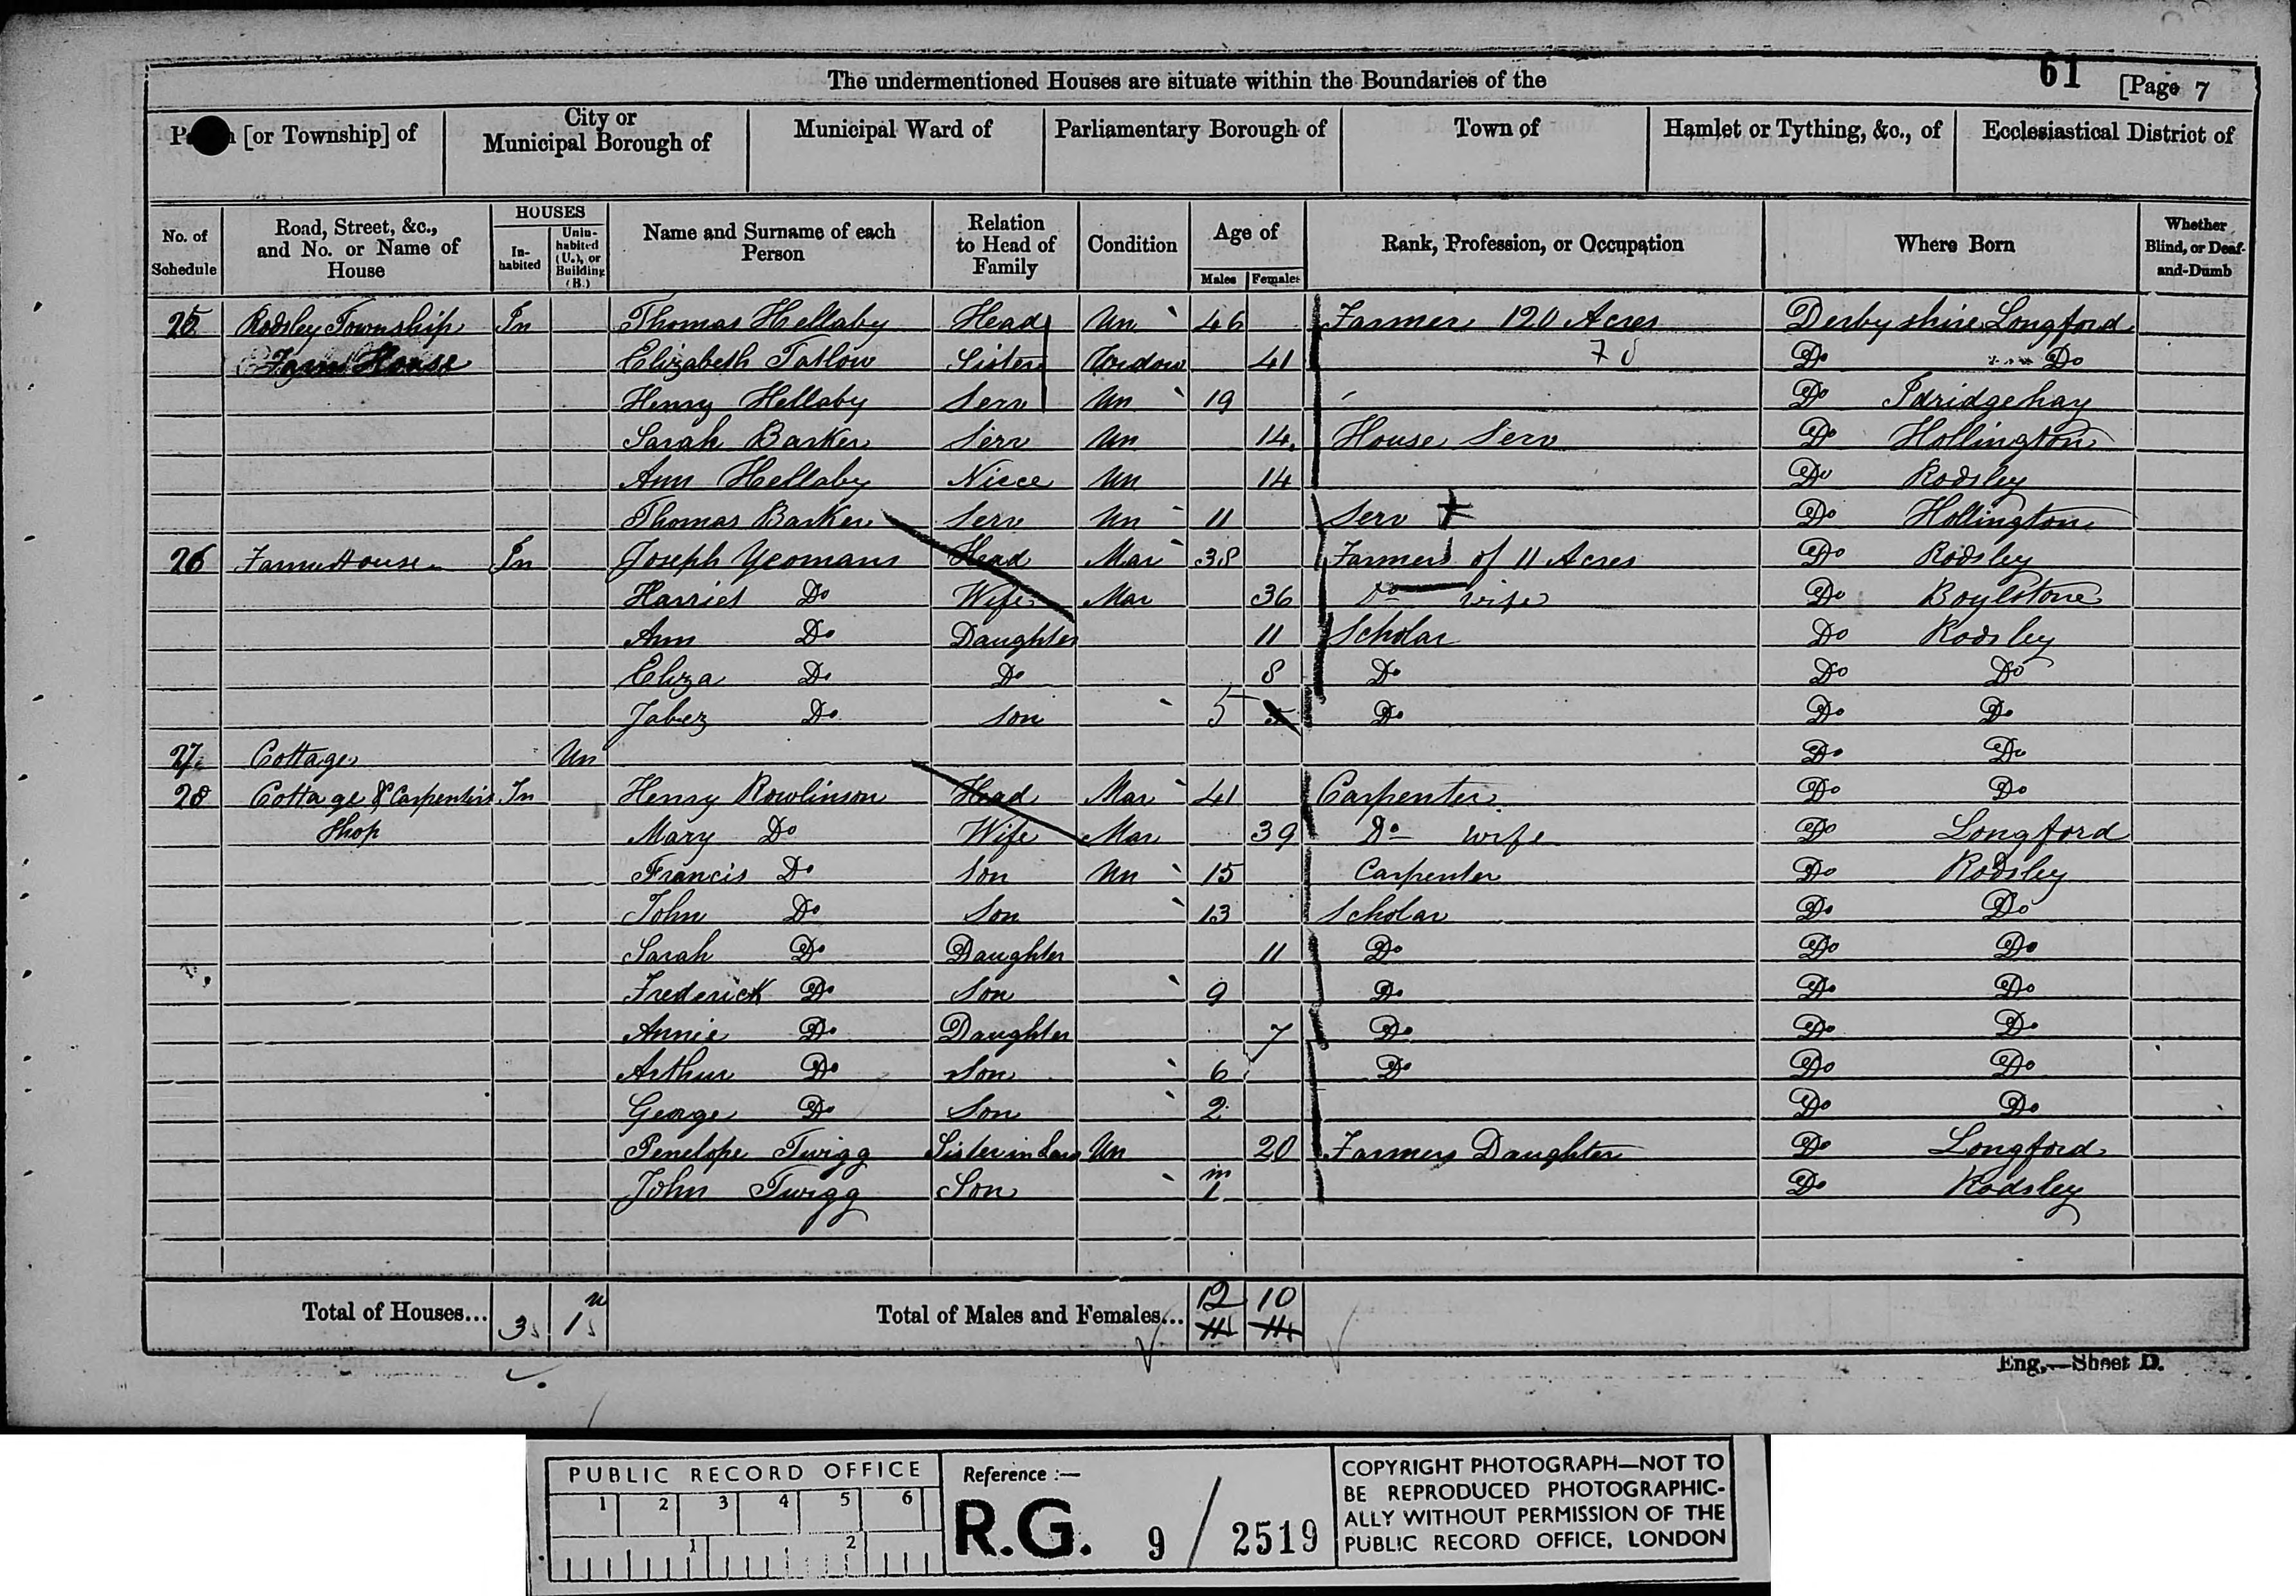 The undermentioned Houses are situate within the Boundaries of the
61 [Page 7
[or Township] of | City or Municipal Borough of | Municipal Ward of | Parliamentary Borough of | Town of | Hamlet or Tything, &c., of | Ecclesiastical District of
No. of Schedule | Road, Street, &c., and No. or Name of House | HOUSES Inhabited | Uninhabited (U.), or Building (B.) | Name and Surname of each Person | Relation to Head of Family | Condition | Age of Males | Females | Rank, Profession, or Occupation | Where Born | Whether Blind, or Deaf-and-Dumb
25 Rodsley Township In Thomas Hellaby Head Un 46 Farmer 120 Acres Derbyshire Longford
Farm House Elizabeth Tatlow Sister Widow 41 Do Do
Henry Hellaby Serv Un 19 Do Idridgehay
Sarah Barker Serv Un 14 House Serv Do Hollington
Ann Hellaby Niece Un 14 Do Rodsley
Thomas Barker Serv Un 11 Serv Do Hollington
26 Farm House In Joseph Yeomans Head Mar 38 Farmer of 11 Acres Do Rodsley
Harriet Do Wife Mar 36 Do wife Do Boylstone
Ann Do Daughter 11 Scholar Do Rodsley
Eliza Do Do 8 Do Do Do
Jabez Do Son 5 Do Do Do
27 Cottage Un Do Do
28 Cottage & Carpenters In Henry Rowlinson Head Mar 41 Carpenter Do Do
Shop Mary Do Wife Mar 39 Do wife Do Longford
Francis Do Son Un 15 Carpenter Do Rodsley
John Do Son 13 Scholar Do Do
Sarah Do Daughter 11 Do Do Do
Frederick Do Son 9 Do Do Do
Annie Do Daughter 7 Do Do Do
Arthur Do Son 6 Do Do Do
George Do Son 2 Do Do
Penelope Twigg Sister in Law Un 20 Farmers Daughter Do Longford
John Twigg Son m 1 Do Rodsley
Total of Houses... 3 1 u Total of Males and Females... 12 10
11 11
Eng.—Sheet D.
PUBLIC RECORD OFFICE
1 2 3 4 5 6
1 2
Reference :—
R.G. 9 / 2519
COPYRIGHT PHOTOGRAPH—NOT TO
BE REPRODUCED PHOTOGRAPHIC-
ALLY WITHOUT PERMISSION OF THE
PUBLIC RECORD OFFICE, LONDON